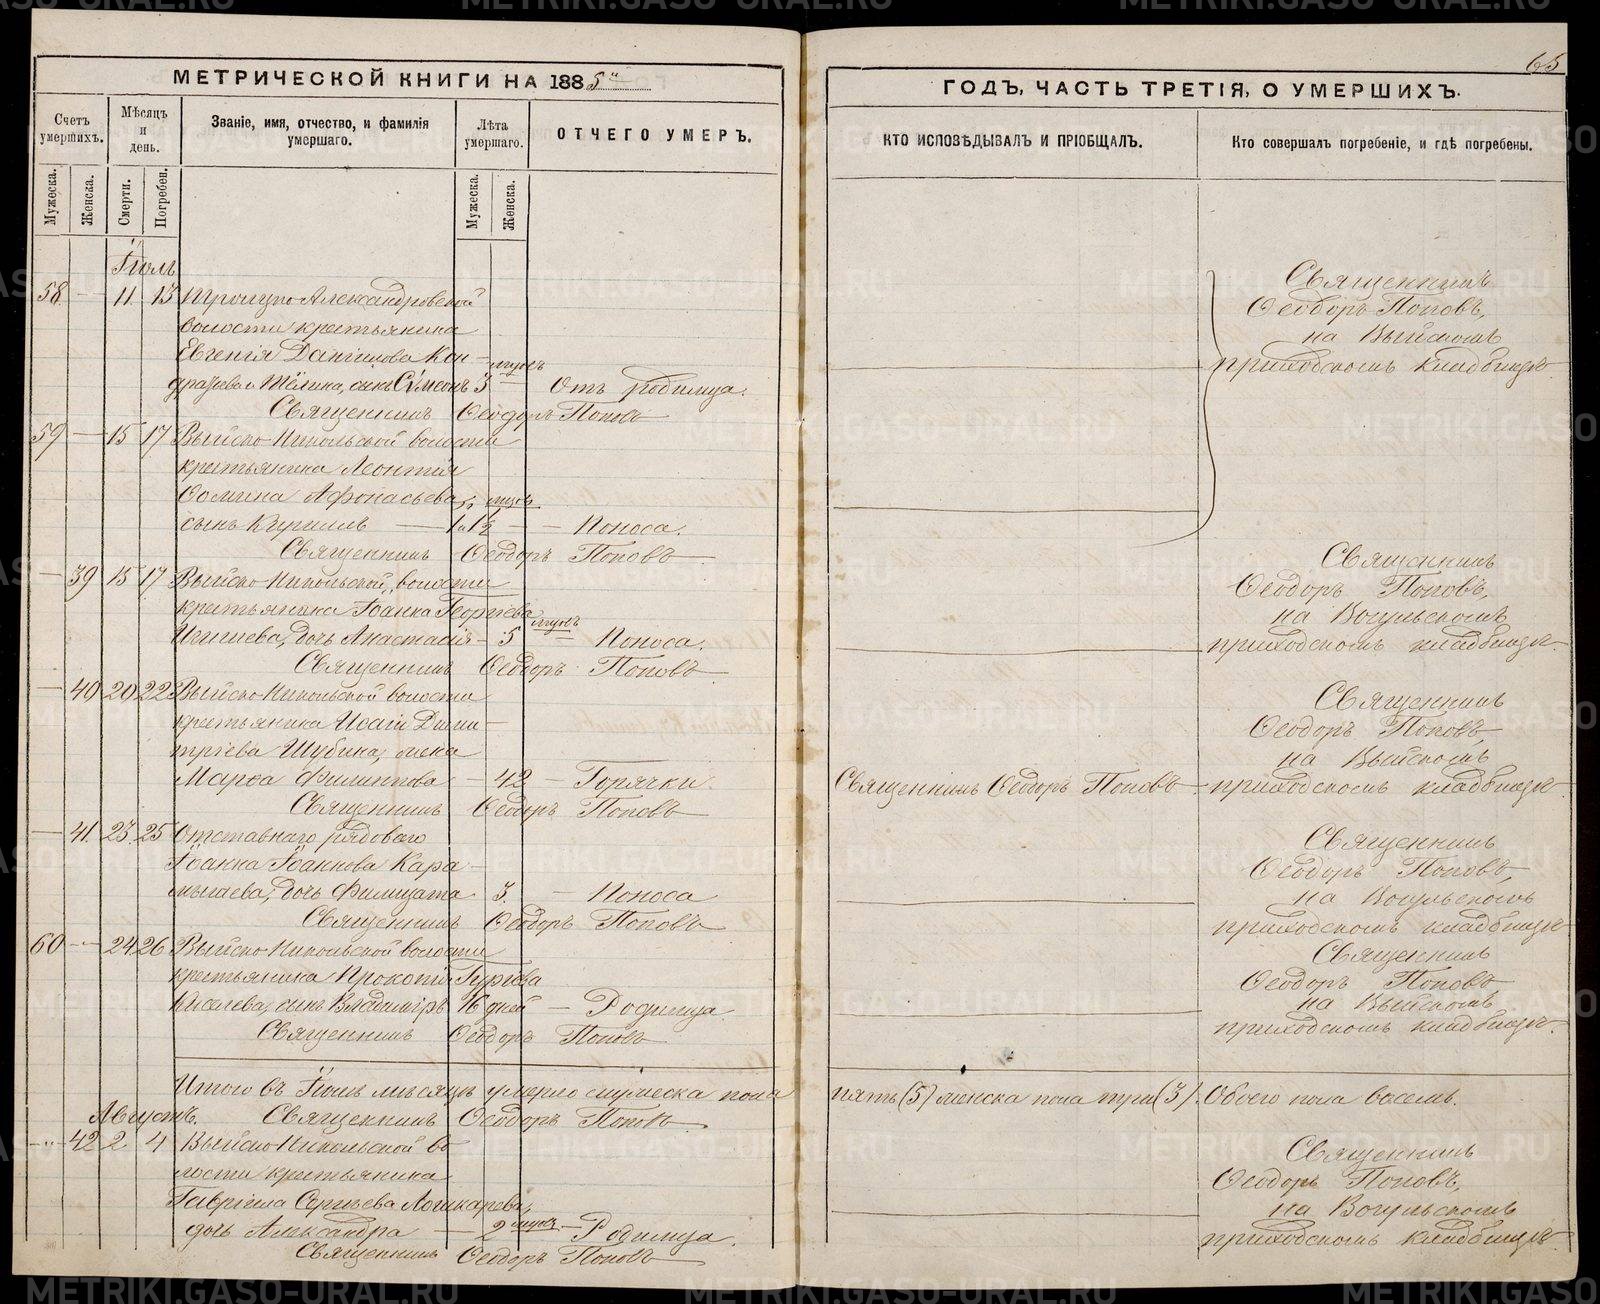 МЕТРИЧЕСКОЙ КНИГИ НА 1885
Счетъ умершихъ.
Мѣсяцъ и день.
Званіе, имя, отчество, и фамилія умершаго.
Лѣта умершаго.
ОТЧЕГО УМЕРЪ.
Мужеска.
Женска.
Смерти.
Погребен.
Мужеска.
Женска.
Іюль
58 — 11 13 Троицко Александровской
волости крестьянина
Евгенія Даніилова Кон-
сынъ Сѵмеонъ 3 Отъ родимца.
Священникъ Ѳеодоръ Поповъ
59 — 15 17 Выйско-Никольской волости
крестьянина Леонтія
Ѳомина Афонасьева,
сынъ Кириллъ — Поноса.
Священникъ Ѳеодоръ Поповъ
— 39 15 17 Выйско-Никольской волости
крестьянина Іоанна Георгіева
дочь Анастасія — 5 Поноса.
Священникъ Ѳеодоръ Поповъ
— 40 20 22 Выйско-Никольской волости
крестьянина Исаіи Дими-
тріева Шубина, жена
Марѳа Филиппова — 42 — Горячки.
Священникъ Ѳеодоръ Поповъ
— 41 23 25 Отставнаго рядоваго
Іоанна Іоаннова Кара-
дочь Филицата 3. — Поноса
Священникъ Ѳеодоръ Поповъ
60 — 24 26 Выйско-Никольской волости
крестьянина Прокопія
Киселева, сынъ Владиміръ 16 дней — Родимца
Священникъ Ѳеодоръ Поповъ
Итого въ Іюлѣ мѣсяцѣ умерло мужеска пола
Священникъ Ѳеодоръ Поповъ
Августъ.
— 42 2 4 Выйско-Никольской во
лости крестьянина
Гавріила Сергѣева Лошкарева,
дочь Александра — 2 — Родимца.
Священникъ Ѳеодоръ Поповъ
65
ГОДЪ, ЧАСТЬ ТРЕТІЯ, О УМЕРШИХЪ.
КТО ИСПОВѢДЫВАЛЪ И ПРІОБЩАЛЪ.
Кто совершалъ погребеніе, и гдѣ погребены.
Священникъ
Ѳеодоръ Поповъ,
на Выйскомъ
приходскомъ кладбищѣ
Священникъ
Ѳеодоръ Поповъ,
на Вогульскомъ
приходскомъ кладбищѣ.
Священникъ
Ѳеодоръ Поповъ
на Выйскомъ
Священникъ Ѳеодоръ Поповъ — приходскомъ кладбищѣ
Священникъ
Ѳеодоръ Поповъ,
на Вогульскомъ
приходскомъ кладбищѣ
Священникъ
Ѳеодоръ Поповъ
на Выйскомъ
приходскомъ кладбищѣ.
пять (5) женска пола три (3). Обоего пола восемь.
Священникъ
Ѳеодоръ Поповъ,
на Вогульскомъ
приходскомъ кладбищѣ
METRIKI.GASO-URAL.RU